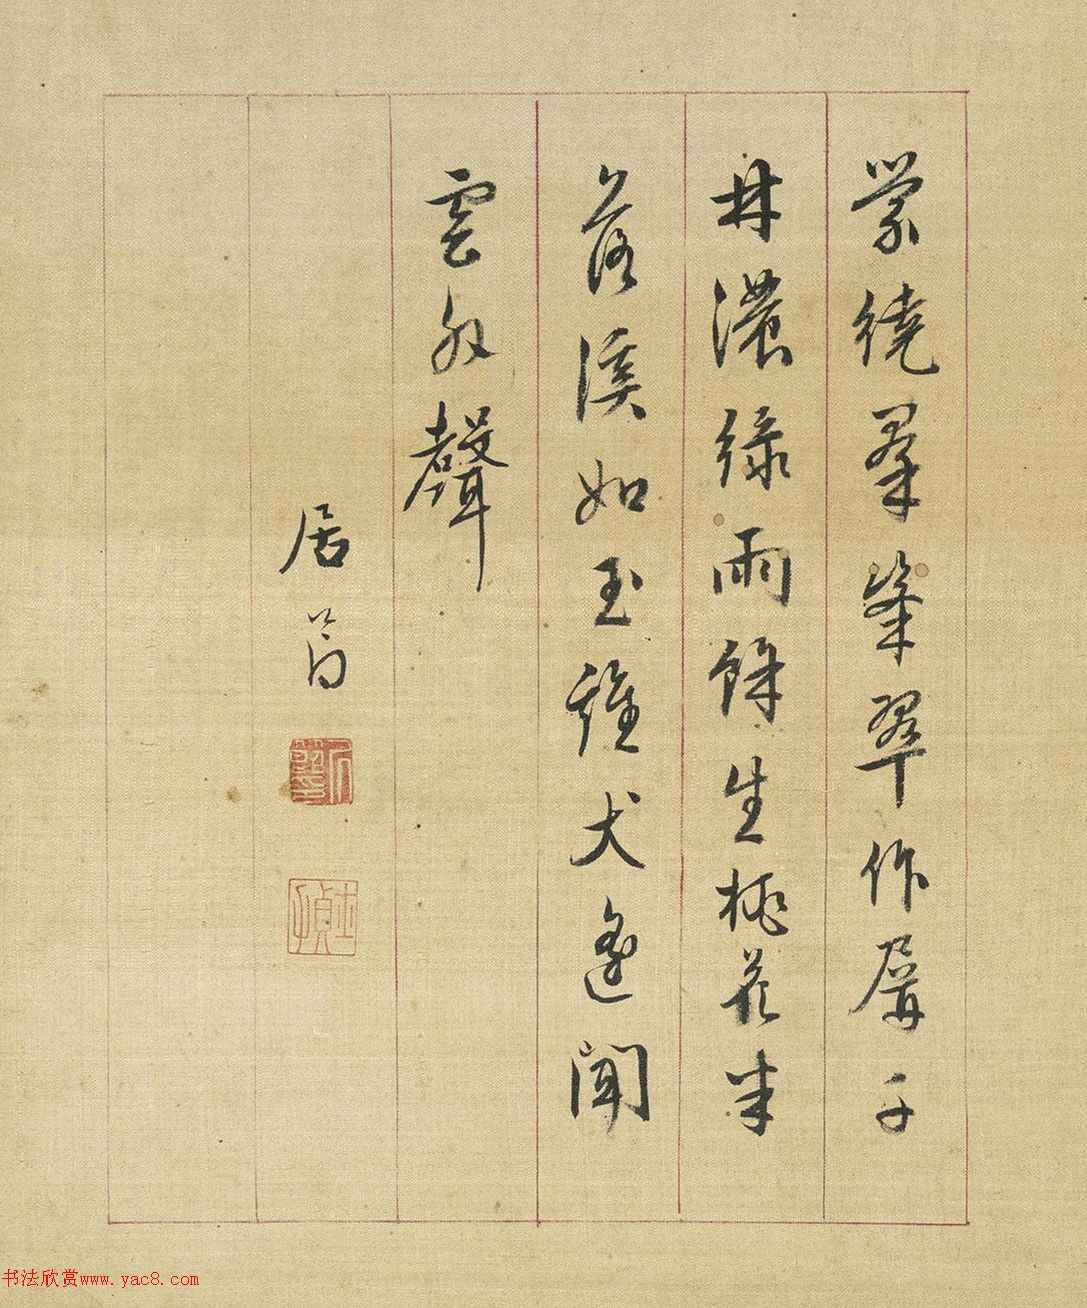 縈繞羣峯翠作屏千
林濃綠雨餘生桃花半
落溪如玉雞犬遙聞
雲外聲
居簡
书法欣赏www.yac8.com